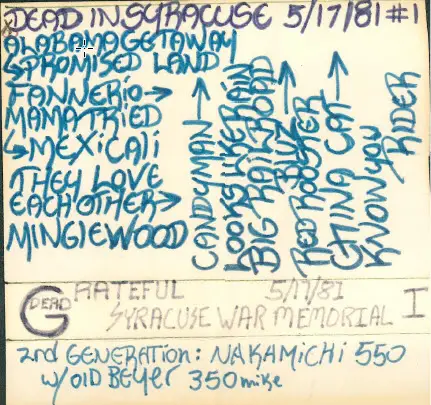 DEAD IN SYRACUSE 5/17/81 #1
ALABAMA GETAWAY
↳PROMISED LAND
FANNERIO→
MAMA TRIED
↳MEXICALI
THEY LOVE
EACH OTHER→
MINGLEWOOD
CANDYMAN→
LOOKS LIKE RAIN
BIG RAILROAD
BLUZ→
RED ROOSTER
CHINA CAT→
KNOW YOU
RIDER
GRATEFUL 5/17/81
DEAD SYRACUSE WAR MEMORIAL I
2nd GENERATION: NAKAMICHI 550
w/ OLD BEYER 350 mike